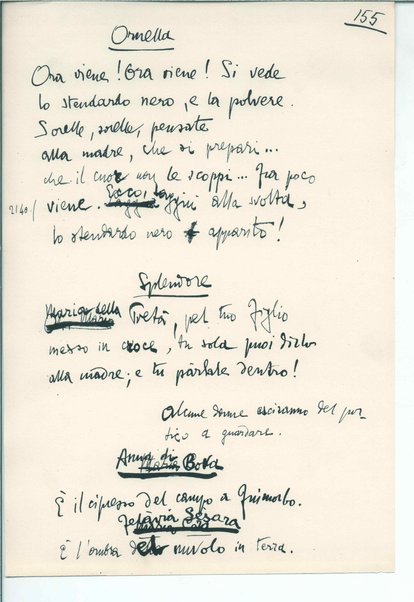 155
Ornella
Ora viene! Ora viene! Si vede
lo stendardo nero, e la polvere.
Sorelle, sorelle, pensate
alla madre, che si prepari...
che il cuor non le scoppi... Fra poco
2140/ viene. Ecco, laggiù alla svolta,
lo stendardo nero è apparito!
Splendore
Maria della Pietà, pel tuo Figlio
messo in croce, tu sola puoi dirlo
alla madre; e tu parlale dentro!
Alcune donne esciranno del por-
tico a guardare.
Anna di Bova
È il cipresso del campo a Fuimorbo.
Sesara
È l'ombra del nuvolo in terra.